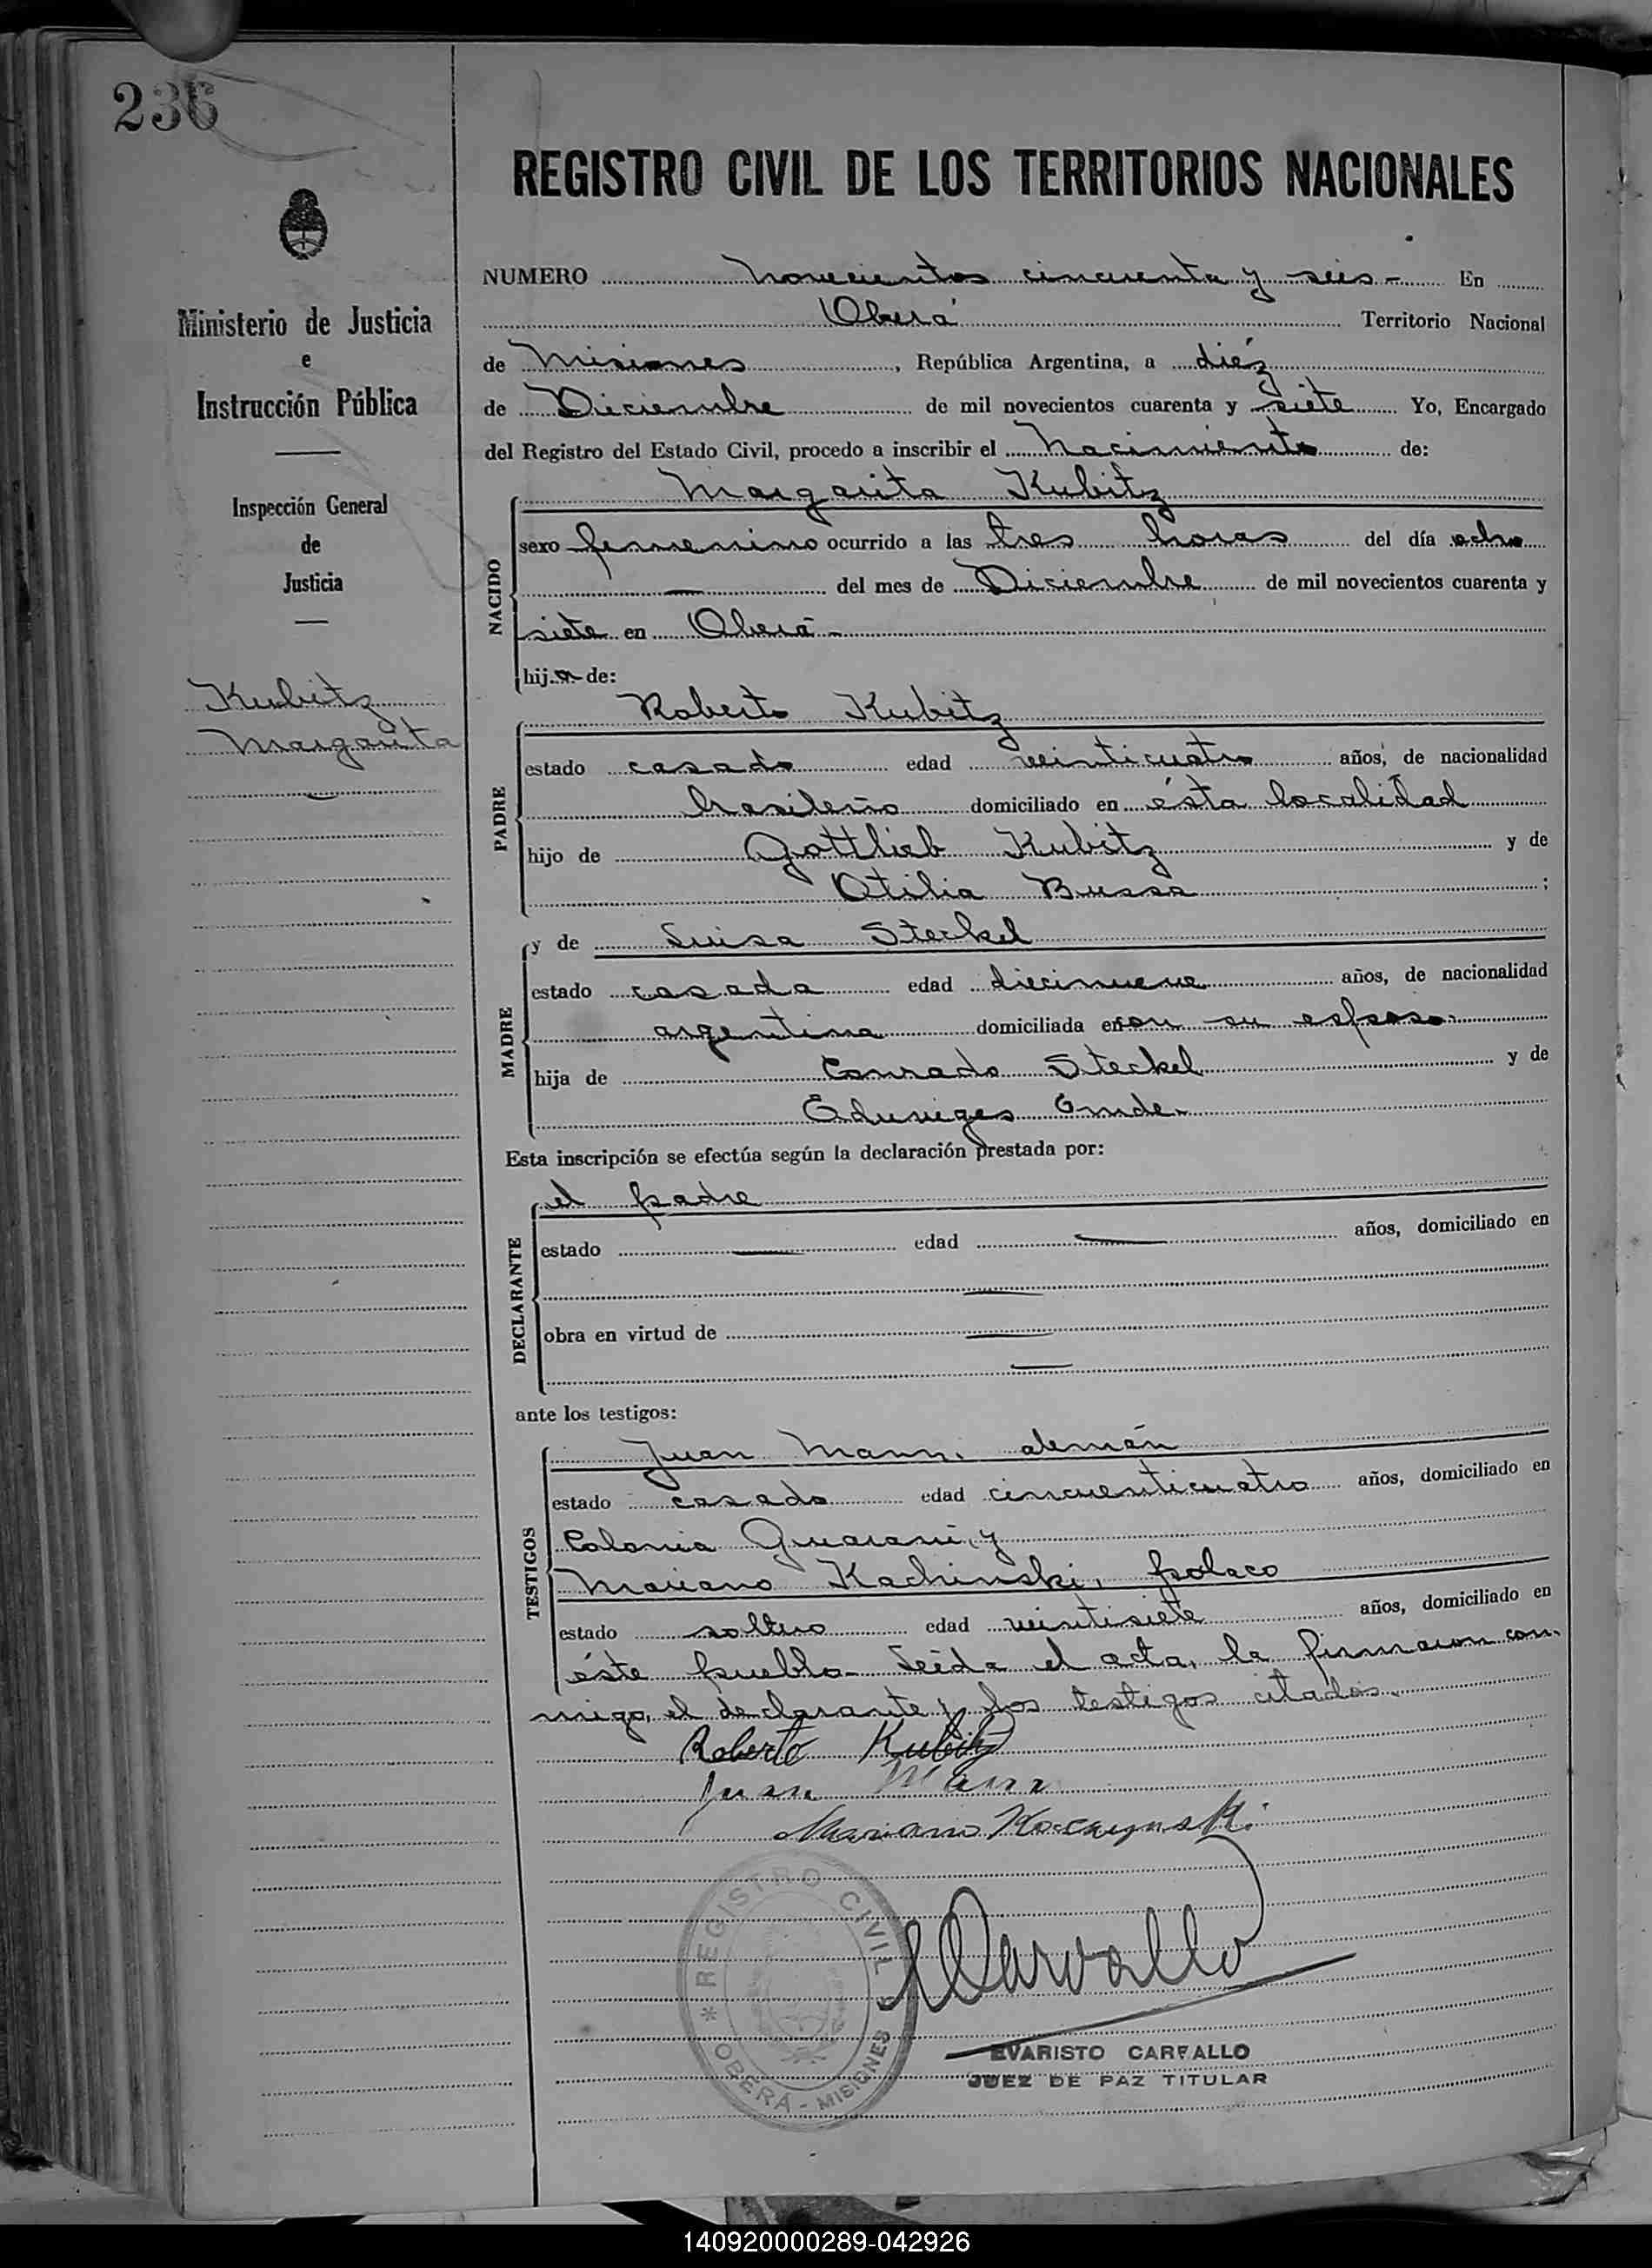 236
Ministerio de Justicia
e
Instrucción Pública
Inspección General
de
Justicia
Kubitz
Margarita
REGISTRO CIVIL DE LOS TERRITORIOS NACIONALES
NUMERO novecientos cincuenta y seis - En
Oberá Territorio Nacional
de Misiones, República Argentina, a diéz
de Diciembre de mil novecientos cuarenta y siete Yo, Encargado
del Registro del Estado Civil, procedo a inscribir el nacimiento de:
Margarita Kubitz
NACIDO
sexo femenino ocurrido a las tres horas del día ocho
— del mes de Diciembre de mil novecientos cuarenta y
siete en Oberá -
hija de:
Roberto Kubitz
PADRE
estado casado edad veinticuatro años, de nacionalidad
brasileño domiciliado en ésta localidad
hijo de Gottlieb Kubitz y de
Otilia Bussa ;
y de Luisa Steckel
MADRE
estado casada edad diecinueve años, de nacionalidad
argentina domiciliada en con su esposo.
hija de Conrado Steckel y de
Eduviges Emde.
Esta inscripción se efectúa según la declaración prestada por:
el padre
DECLARANTE
estado — edad — años, domiciliado en
—
obra en virtud de —
—
ante los testigos:
Juan Mann, alemán
TESTIGOS
estado casado edad cincuenticuatro años, domiciliado en
Colonia Guaraní, y
Mariano Kachinski, polaco
estado soltero edad veintisiete años, domiciliado en
éste pueblo - Leída el acta, la firmaron con-
migo, el declarante y los testigos citados.
Roberto Kubitz
Juan Mann
Mariano Koczynski
REGISTRO CIVIL
* OBERÁ - MISIONES *
ECarvallo
EVARISTO CARVALLO
JUEZ DE PAZ TITULAR
140920000289-042926